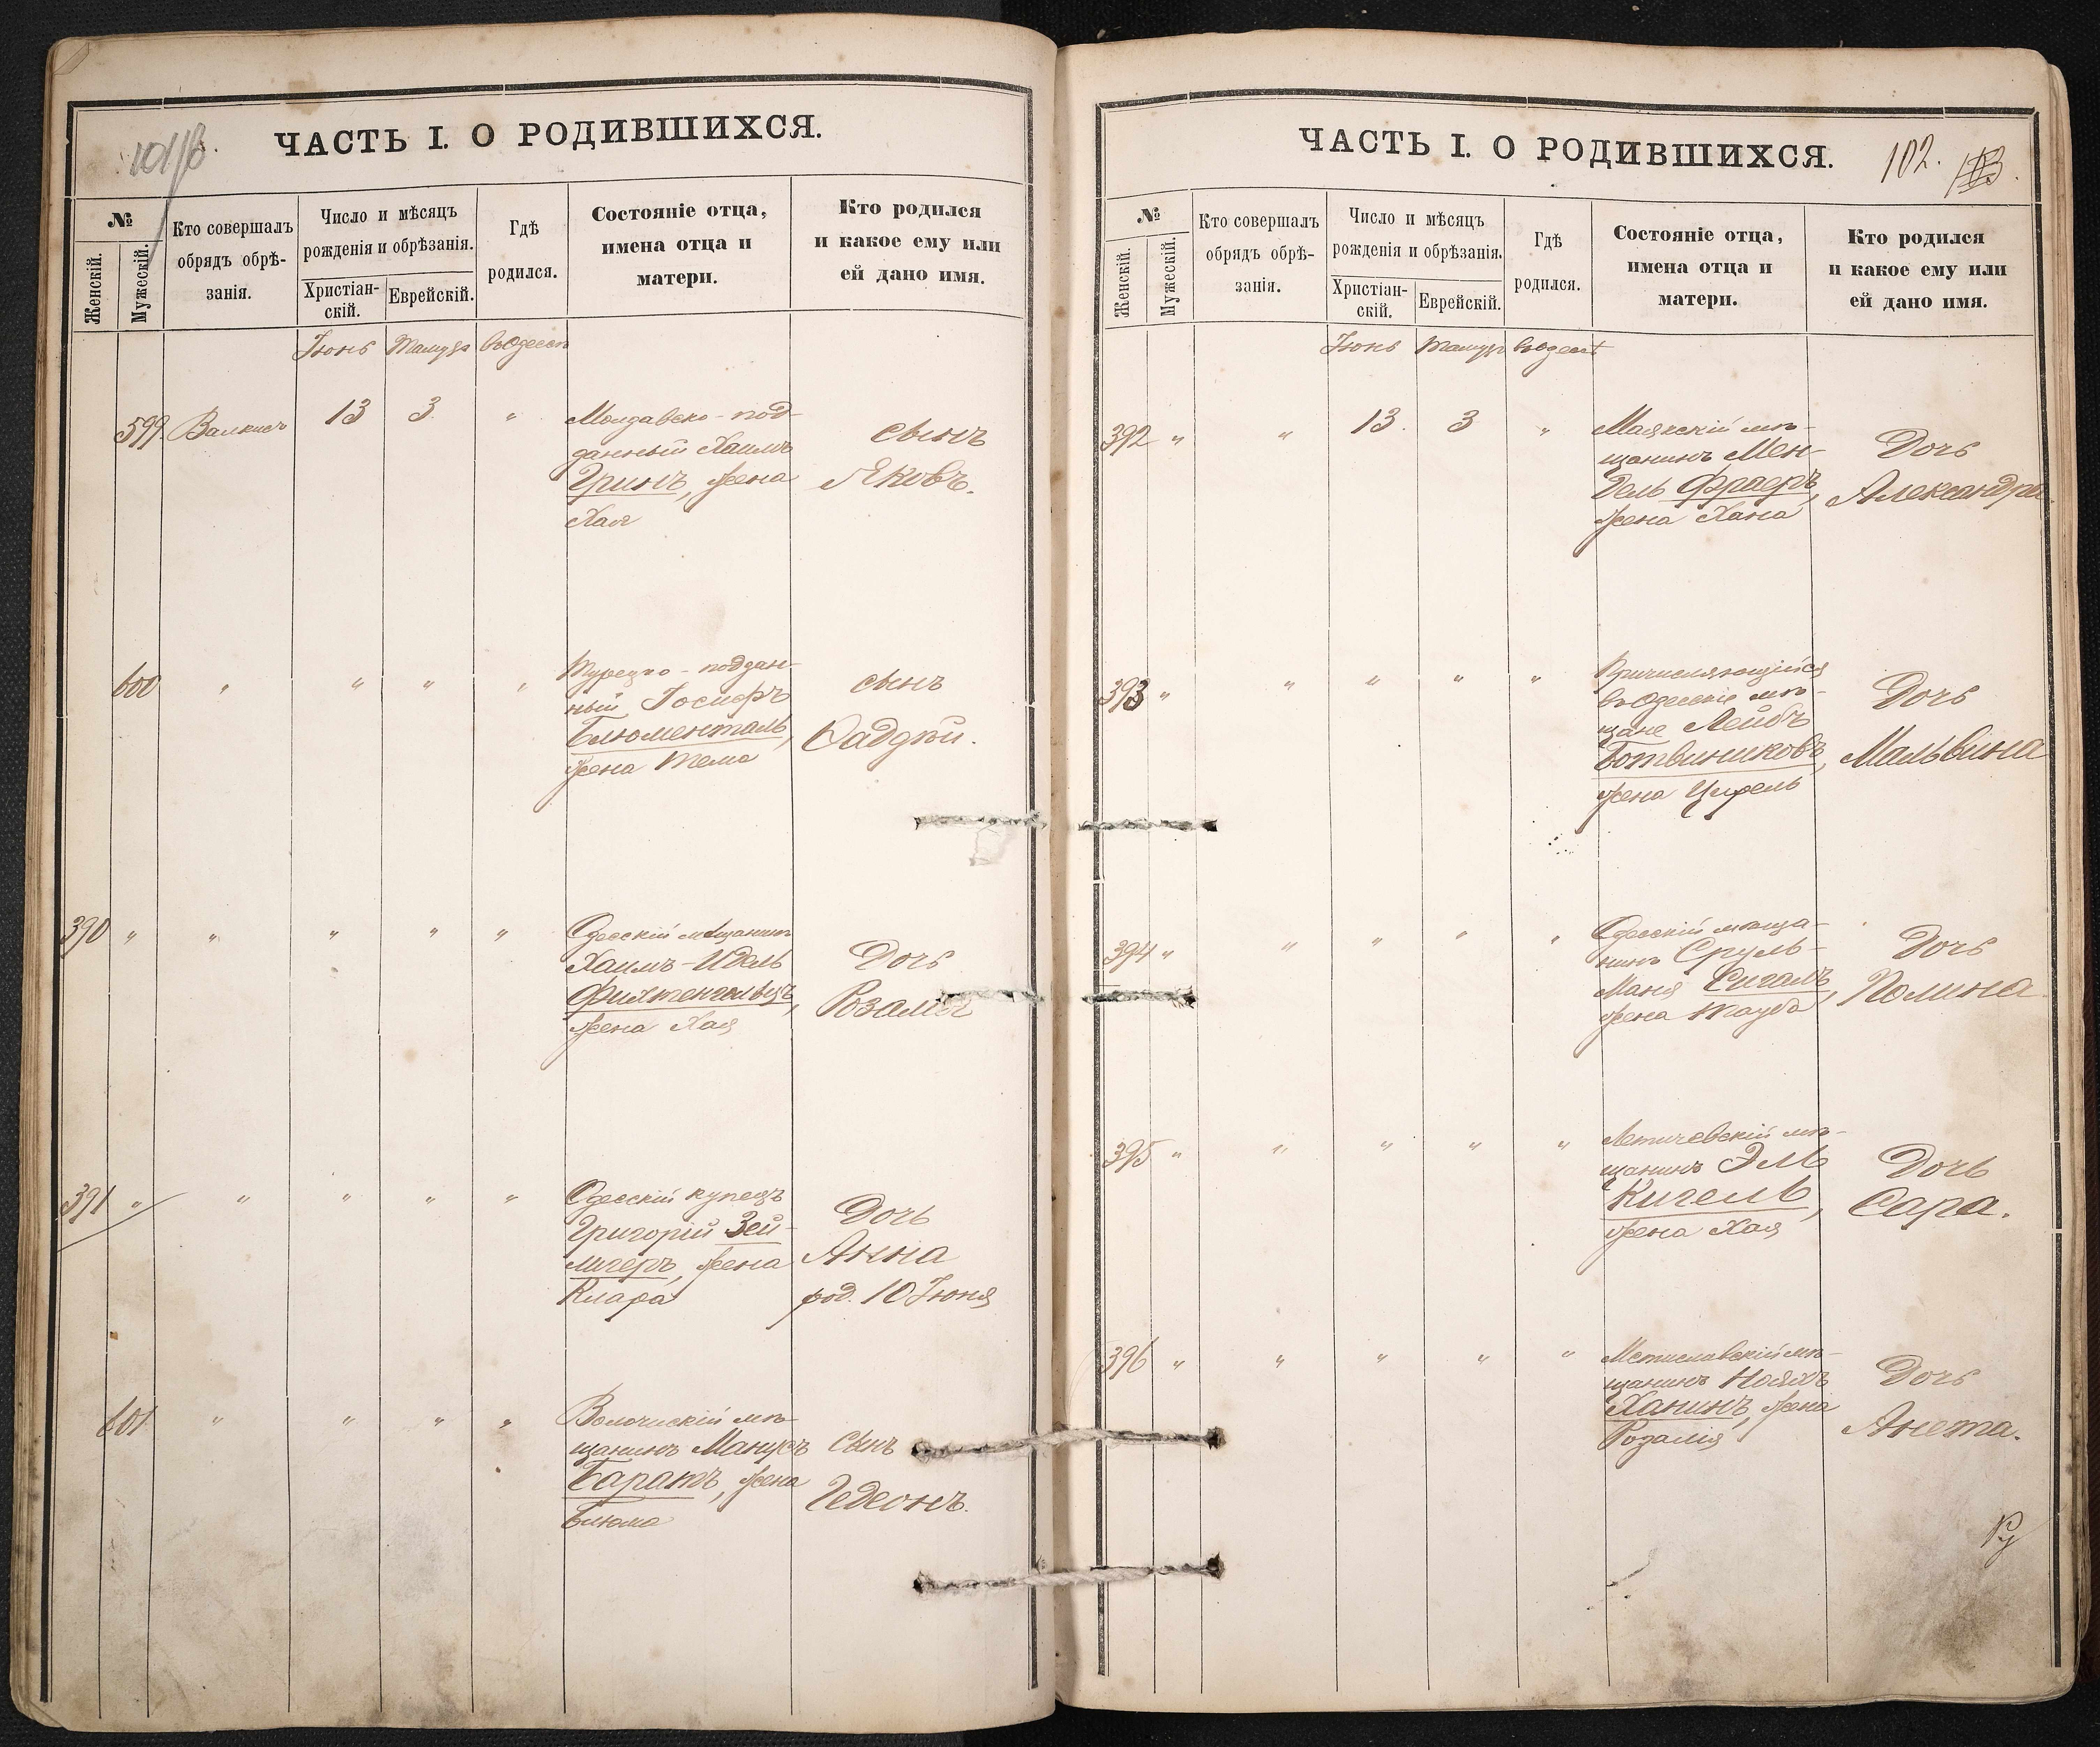 101/В.
ЧАСТЬ I. О РОДИВШИХСЯ.
№
Женскій.
Мужескій.
Кто совершалъ
обрядъ обрѣ-
занія.
Число и мѣсяцъ
рожденія и обрѣзанія.
Христіан-
скій.
Еврейскій.
Гдѣ
родился.
Состояніе отца,
имена отца и
матери.
Кто родился
и какое ему или
ей дано имя.
Іюнь Тамузъ въ Одессѣ
599 Валкисъ 13 3 "
Молдавско-под-
данный Хаимъ
Гринъ, жена
Хая
сынъ
Яковъ.
600 " " " "
Турецко-поддан-
ный Іосифъ
Блюменталь,
жена Тема
сынъ
390 " " " " "
Одесскій мѣщанинъ
Хаимъ-Идель
жена Хая
Дочь
391 " " " " "
Одесскій купецъ
Григорій Зей-
лигеръ, жена
Клара
Дочь
Анна
род. 10 Іюня
601 " " " "
Волочискій мѣ-
щанинъ
жена
Блюма
сынъ
Гедеонъ.
ЧАСТЬ I. О РОДИВШИХСЯ.
102. 103.
№
Женскій.
Мужескій.
Кто совершалъ
обрядъ обрѣ-
занія.
Число и мѣсяцъ
рожденія и обрѣзанія.
Христіан-
скій.
Еврейскій.
Гдѣ
родился.
Состояніе отца,
имена отца и
матери.
Кто родился
и какое ему или
ей дано имя.
Іюнь Тамузъ въ Одессѣ
392 " " 13. 3 "
Маякскій мѣ-
щанинъ Мен-
дель Фраеръ,
жена Хана
Дочь
Александра.
393 " " " " "
Причисляющійся
въ Одесскіе мѣ-
щане Лейбъ
Ботвинниковъ,
жена Ципель
Дочь
Мальвина
394 " " " " "
Одесскій мѣща-
нинъ Сруль-
Маня Сигалъ,
жена Тауба
Дочь
Полина.
395 " " " " "
Летичевскій мѣ-
щанинъ Эль
Кигель,
жена Хая
Дочь
Сара.
396 " " " " "
Мстиславскій мѣ-
щанинъ Ноахъ
Ханинъ, жена
Розалія
Дочь
Анета.